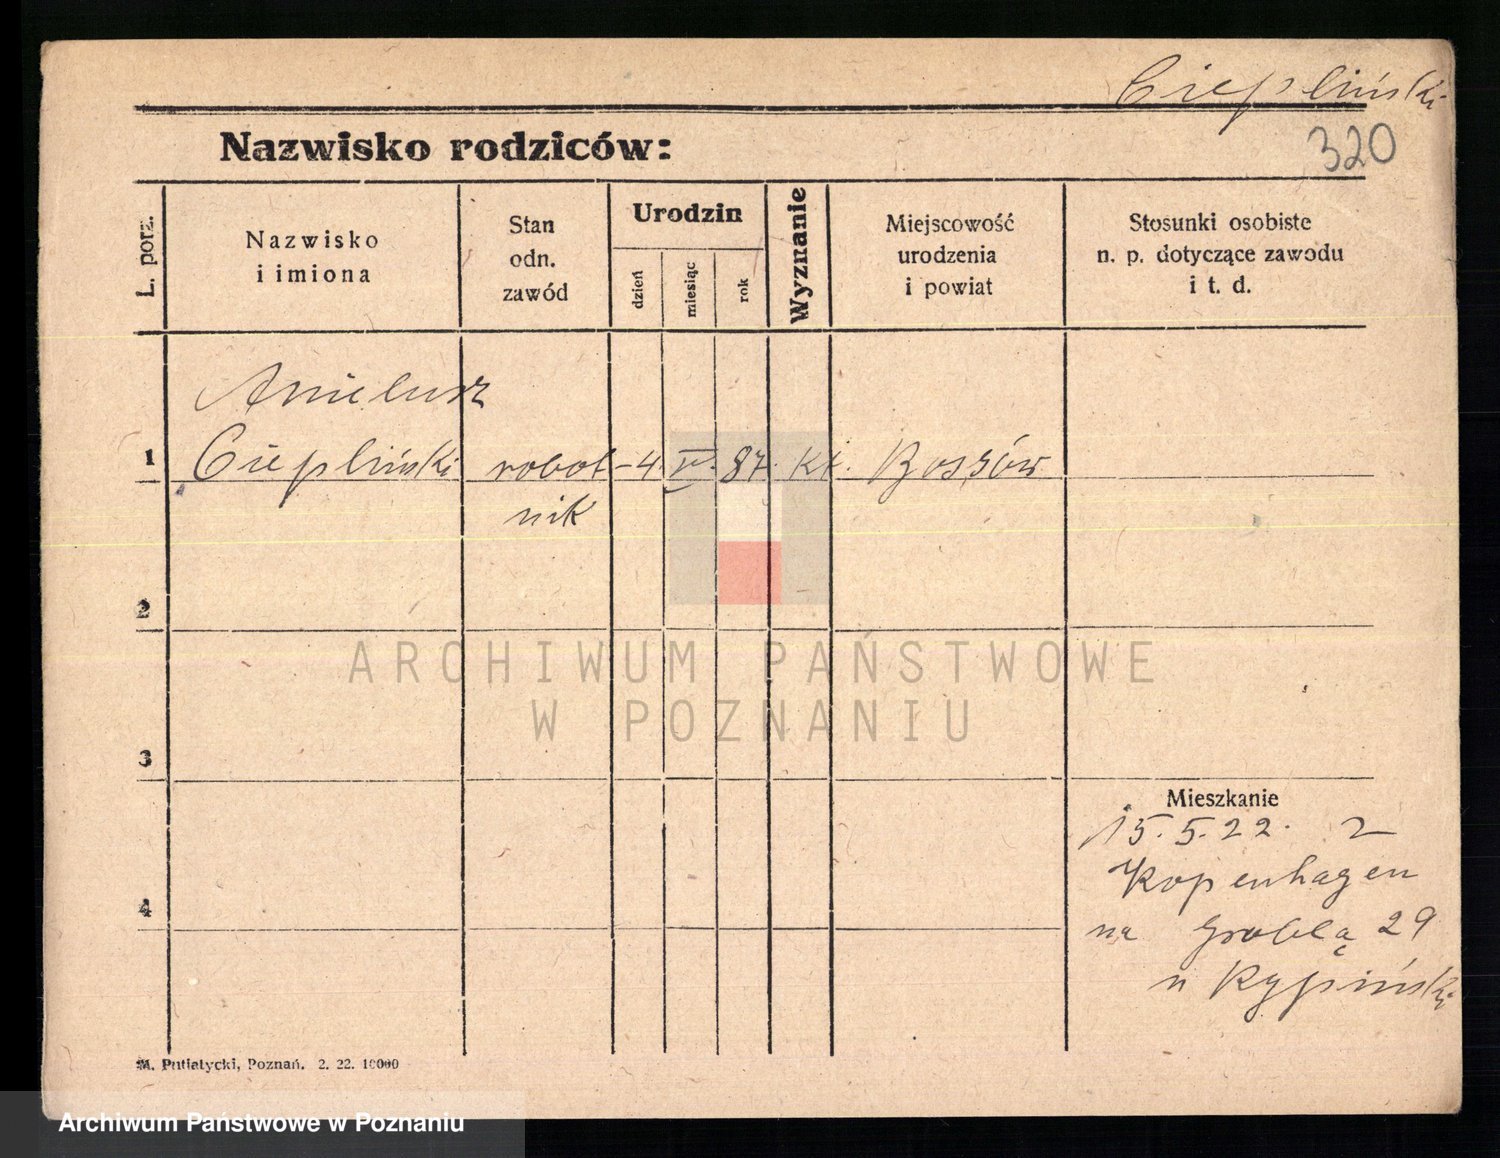 Ciepliński
320
Nazwisko rodziców:
L. porz.
Nazwisko
i imiona
Stan
odn.
zawód
Urodzin
dzień
miesiąc
rok
Wyznanie
Miejscowość
urodzenia
i powiat
Stosunki osobiste
n. p. dotyczące zawodu
i t. d.
1
Ciepliński
robot- 4. IV. 87. kk.
nik
2
ARCHIWUM PAŃSTWOWE
W POZNANIU
3
Mieszkanie
15.5.22. z
Kopenhagen
4
na Groblą 29
u Rypiński
M. Putiatycki, Poznań. 2. 22. 10000
Archiwum Państwowe w Poznaniu